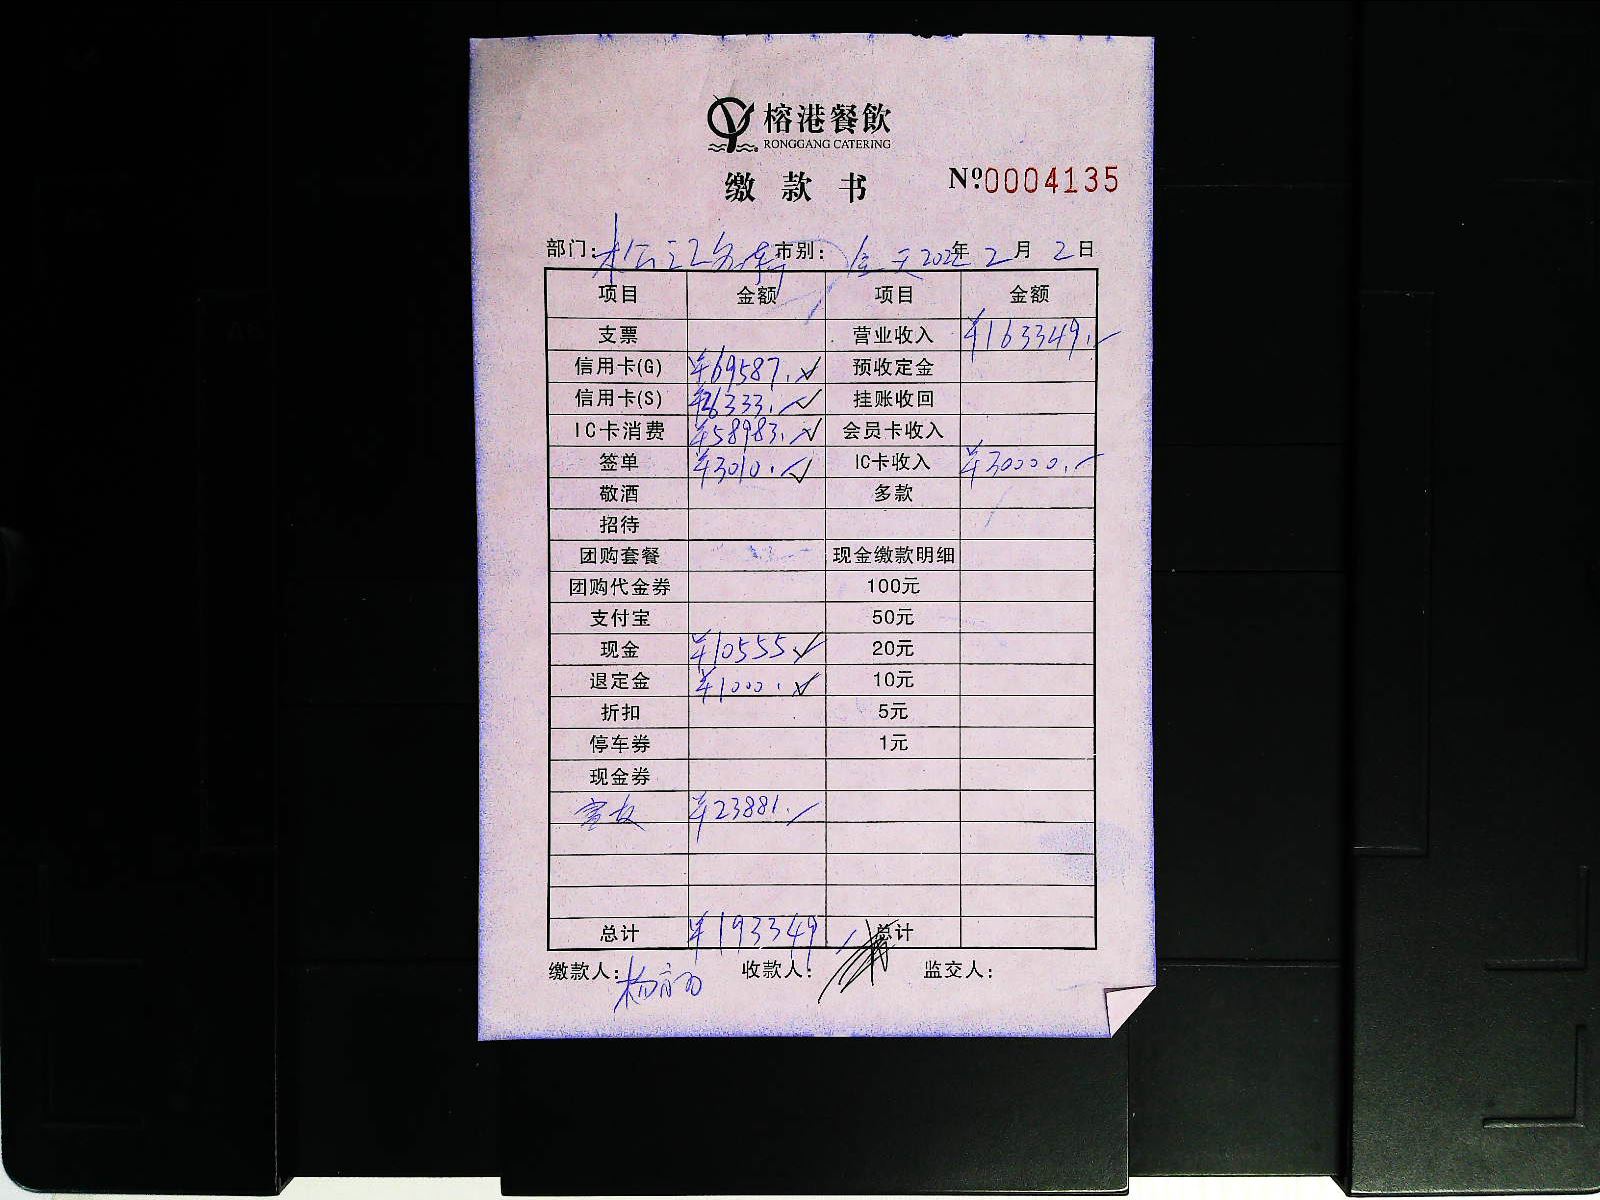 榕港餐飲
RONGGANG CATERING
缴款书 Nº0004135
部门: 松江名轩 市别: 全天 2022年2月2日
项目 金额 项目 金额
支票 营业收入 ¥163349.
信用卡(G) ¥69587. 预收定金
信用卡(S) ¥26333. 挂账收回
IC卡消费 ¥58983. 会员卡收入
签单 ¥3010. IC卡收入 ¥30000.
敬酒 多款
招待
团购套餐 现金缴款明细
团购代金券 100元
支付宝 50元
现金 ¥10555 20元
退定金 ¥1000. 10元
折扣 5元
停车券 1元
现金券
¥23881.
总计 ¥193349 总计
缴款人: 杨 收款人: 监交人: